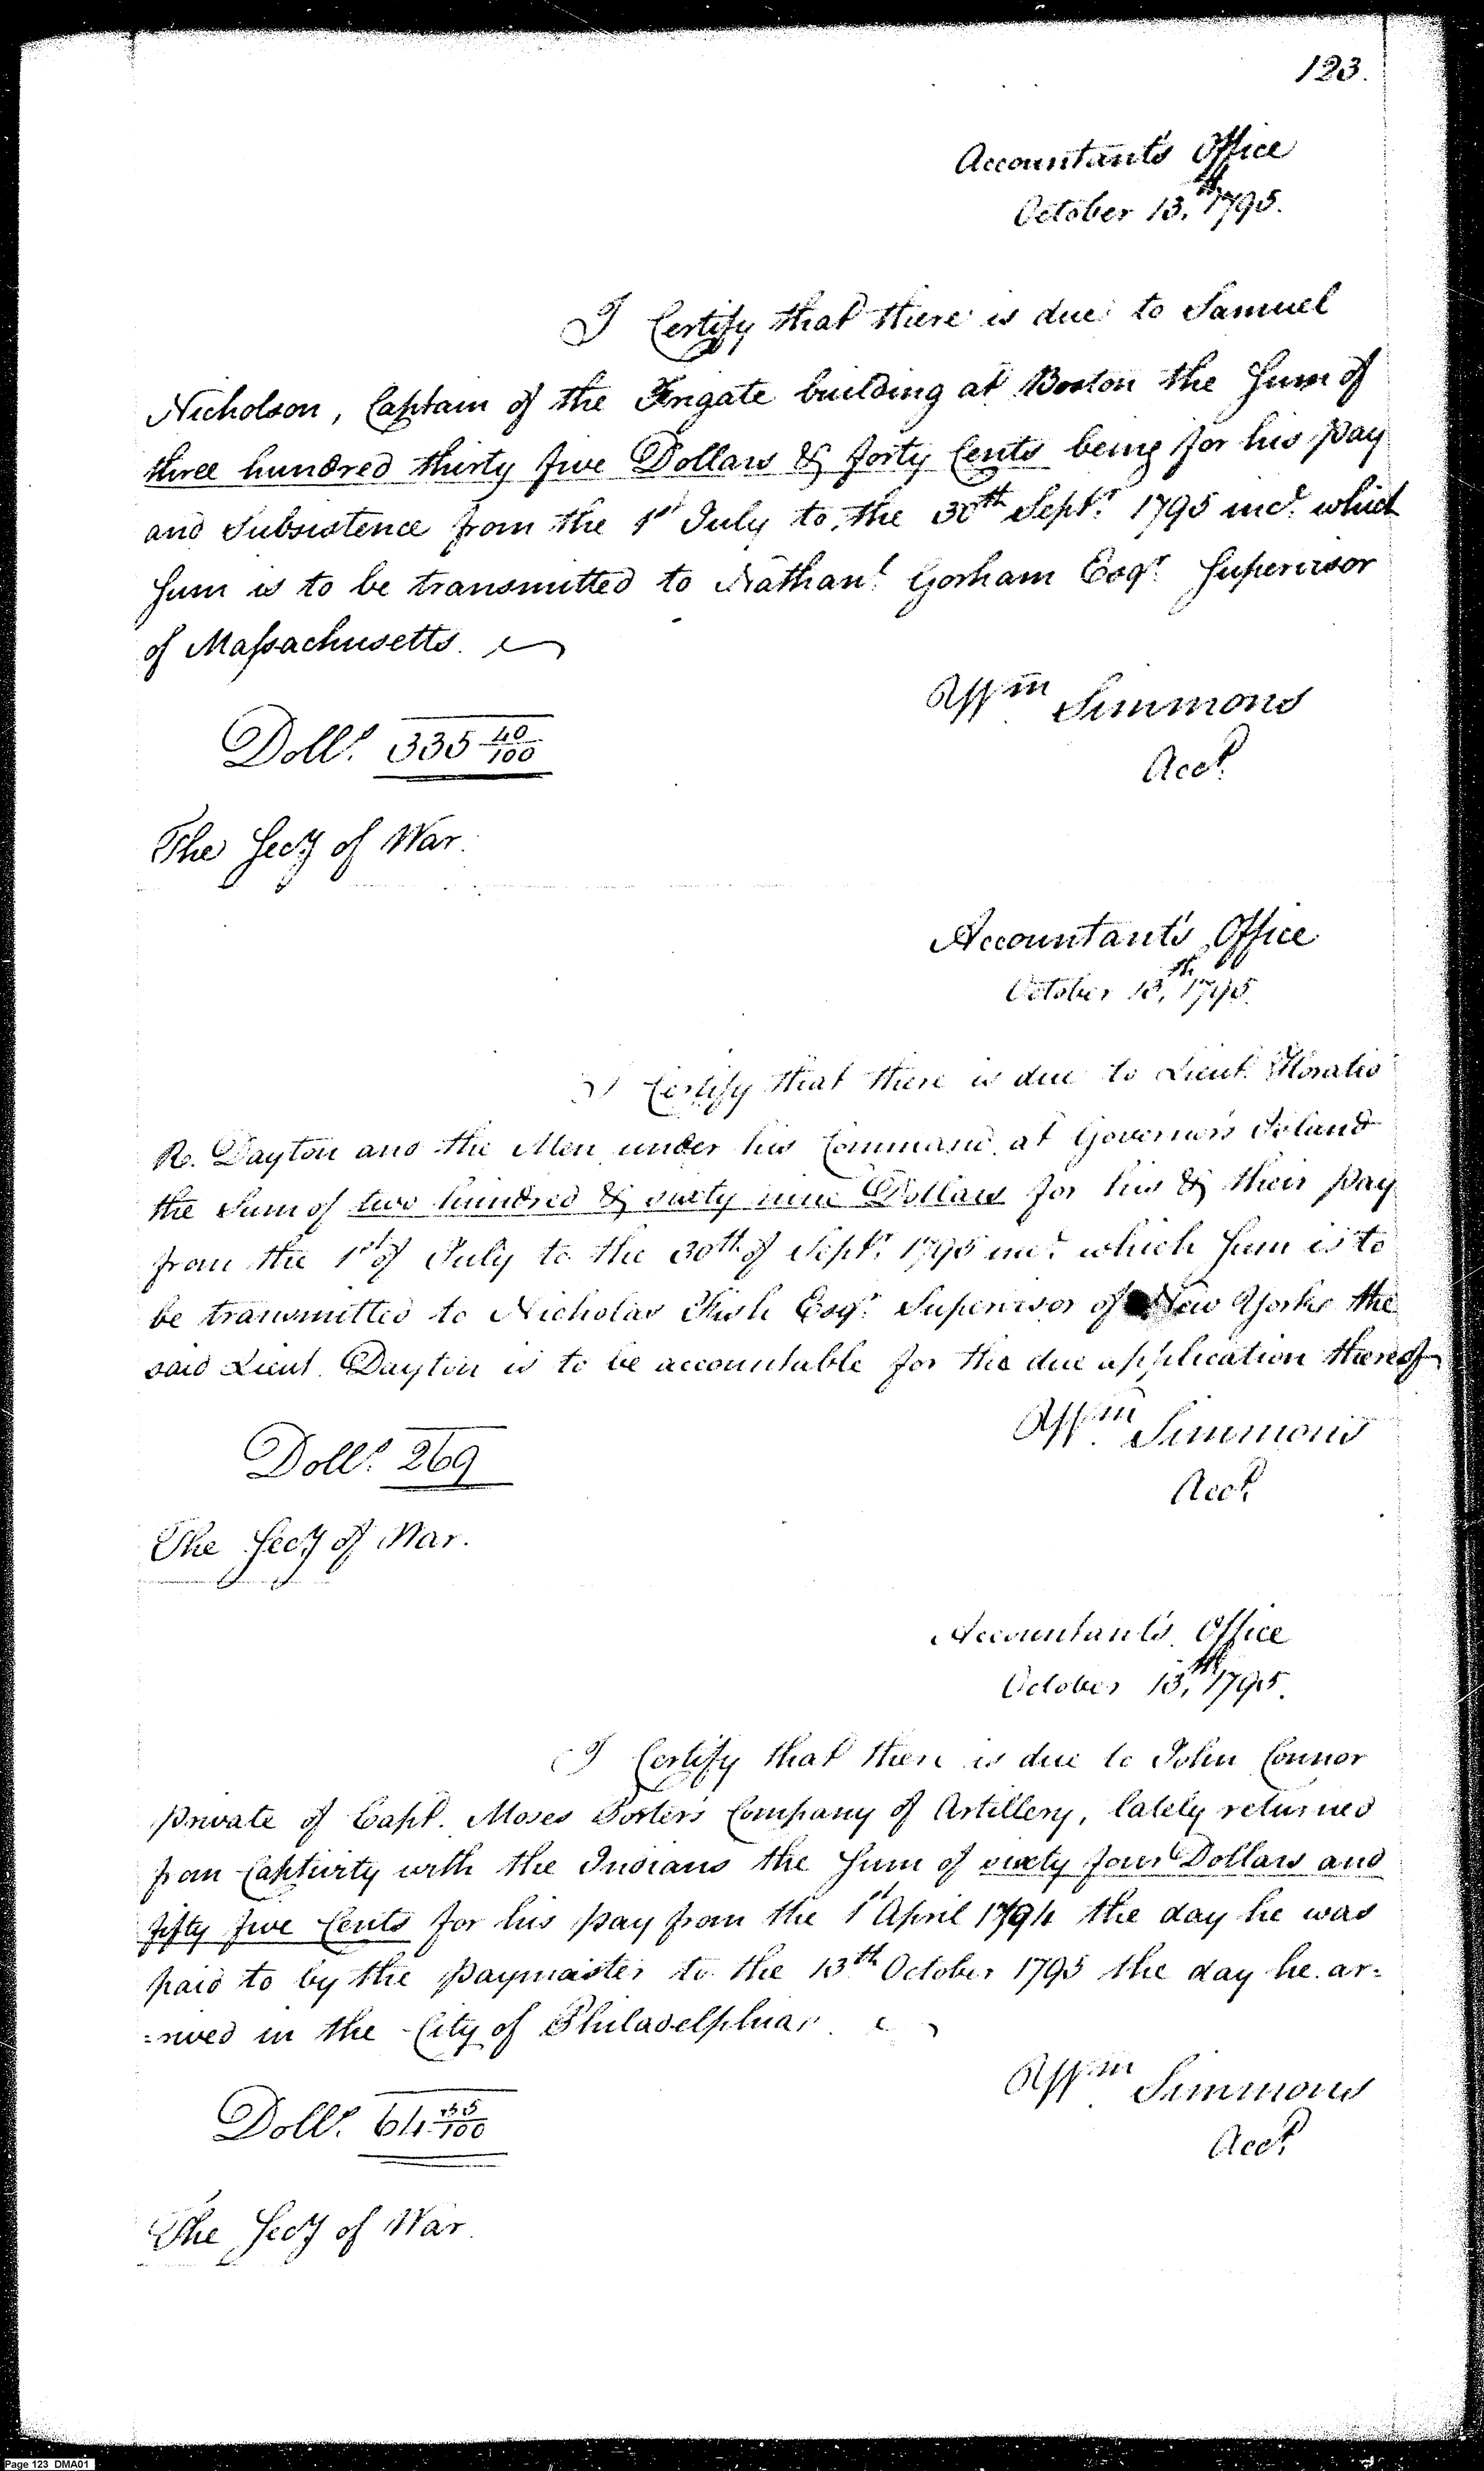 123.
Accountant's Office
October 13,th 1795.
I Certify that there is due to Samuel
Nicholson, Captain of the Frigate building at Boston the Sum of
three hundred thirty five Dollars & forty Cents being for his pay
and Subsistence from the 1st July to, the 30th Septr. 1795 incd. which
Sum is to be transmitted to Nathanl. Gorham Esqr. Supervisor
of Massachusetts.
Wm. Simmons
Dolls. 335 40/100
Acct.
The Secy of War.
Accountant's Office
October 13,th 1795.
I Certify that there is due to Lieut. Horatio
R. Dayton and the Men under his Command at Governor's Island
the Sum of two hundred & sixty nine Dollars for his & their pay
from the 1st of July to the 30th of Septr. 1795 incd. which Sum is to
be transmitted to Nicholas Fish Esqr. Supervisor of New York the
said Lieut. Dayton is to be accountable for the due application thereof
Wm. Simmons
Dolls. 269
Acct.
The Secy of War.
Accountant's Office
October 13,th 1795.
I Certify that there is due to John Connor
private of Capt. Moses Porter's Company of Artillery, lately returned
from Captivity with the Indians the Sum of sixty four Dollars and
fifty five Cents for his pay from the 1st April 1794 the day he was
paid to by the paymaster to the 13th October 1795 the day he ar=
=rived in the City of Philadelphia.
Wm. Simmons
Dolls. 64 55/100
Acct.
The Secy of War.
Page 123 DMA01